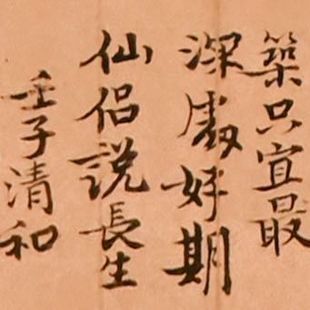 築只宜最
深處好期
仙侣說長生
壬子清和